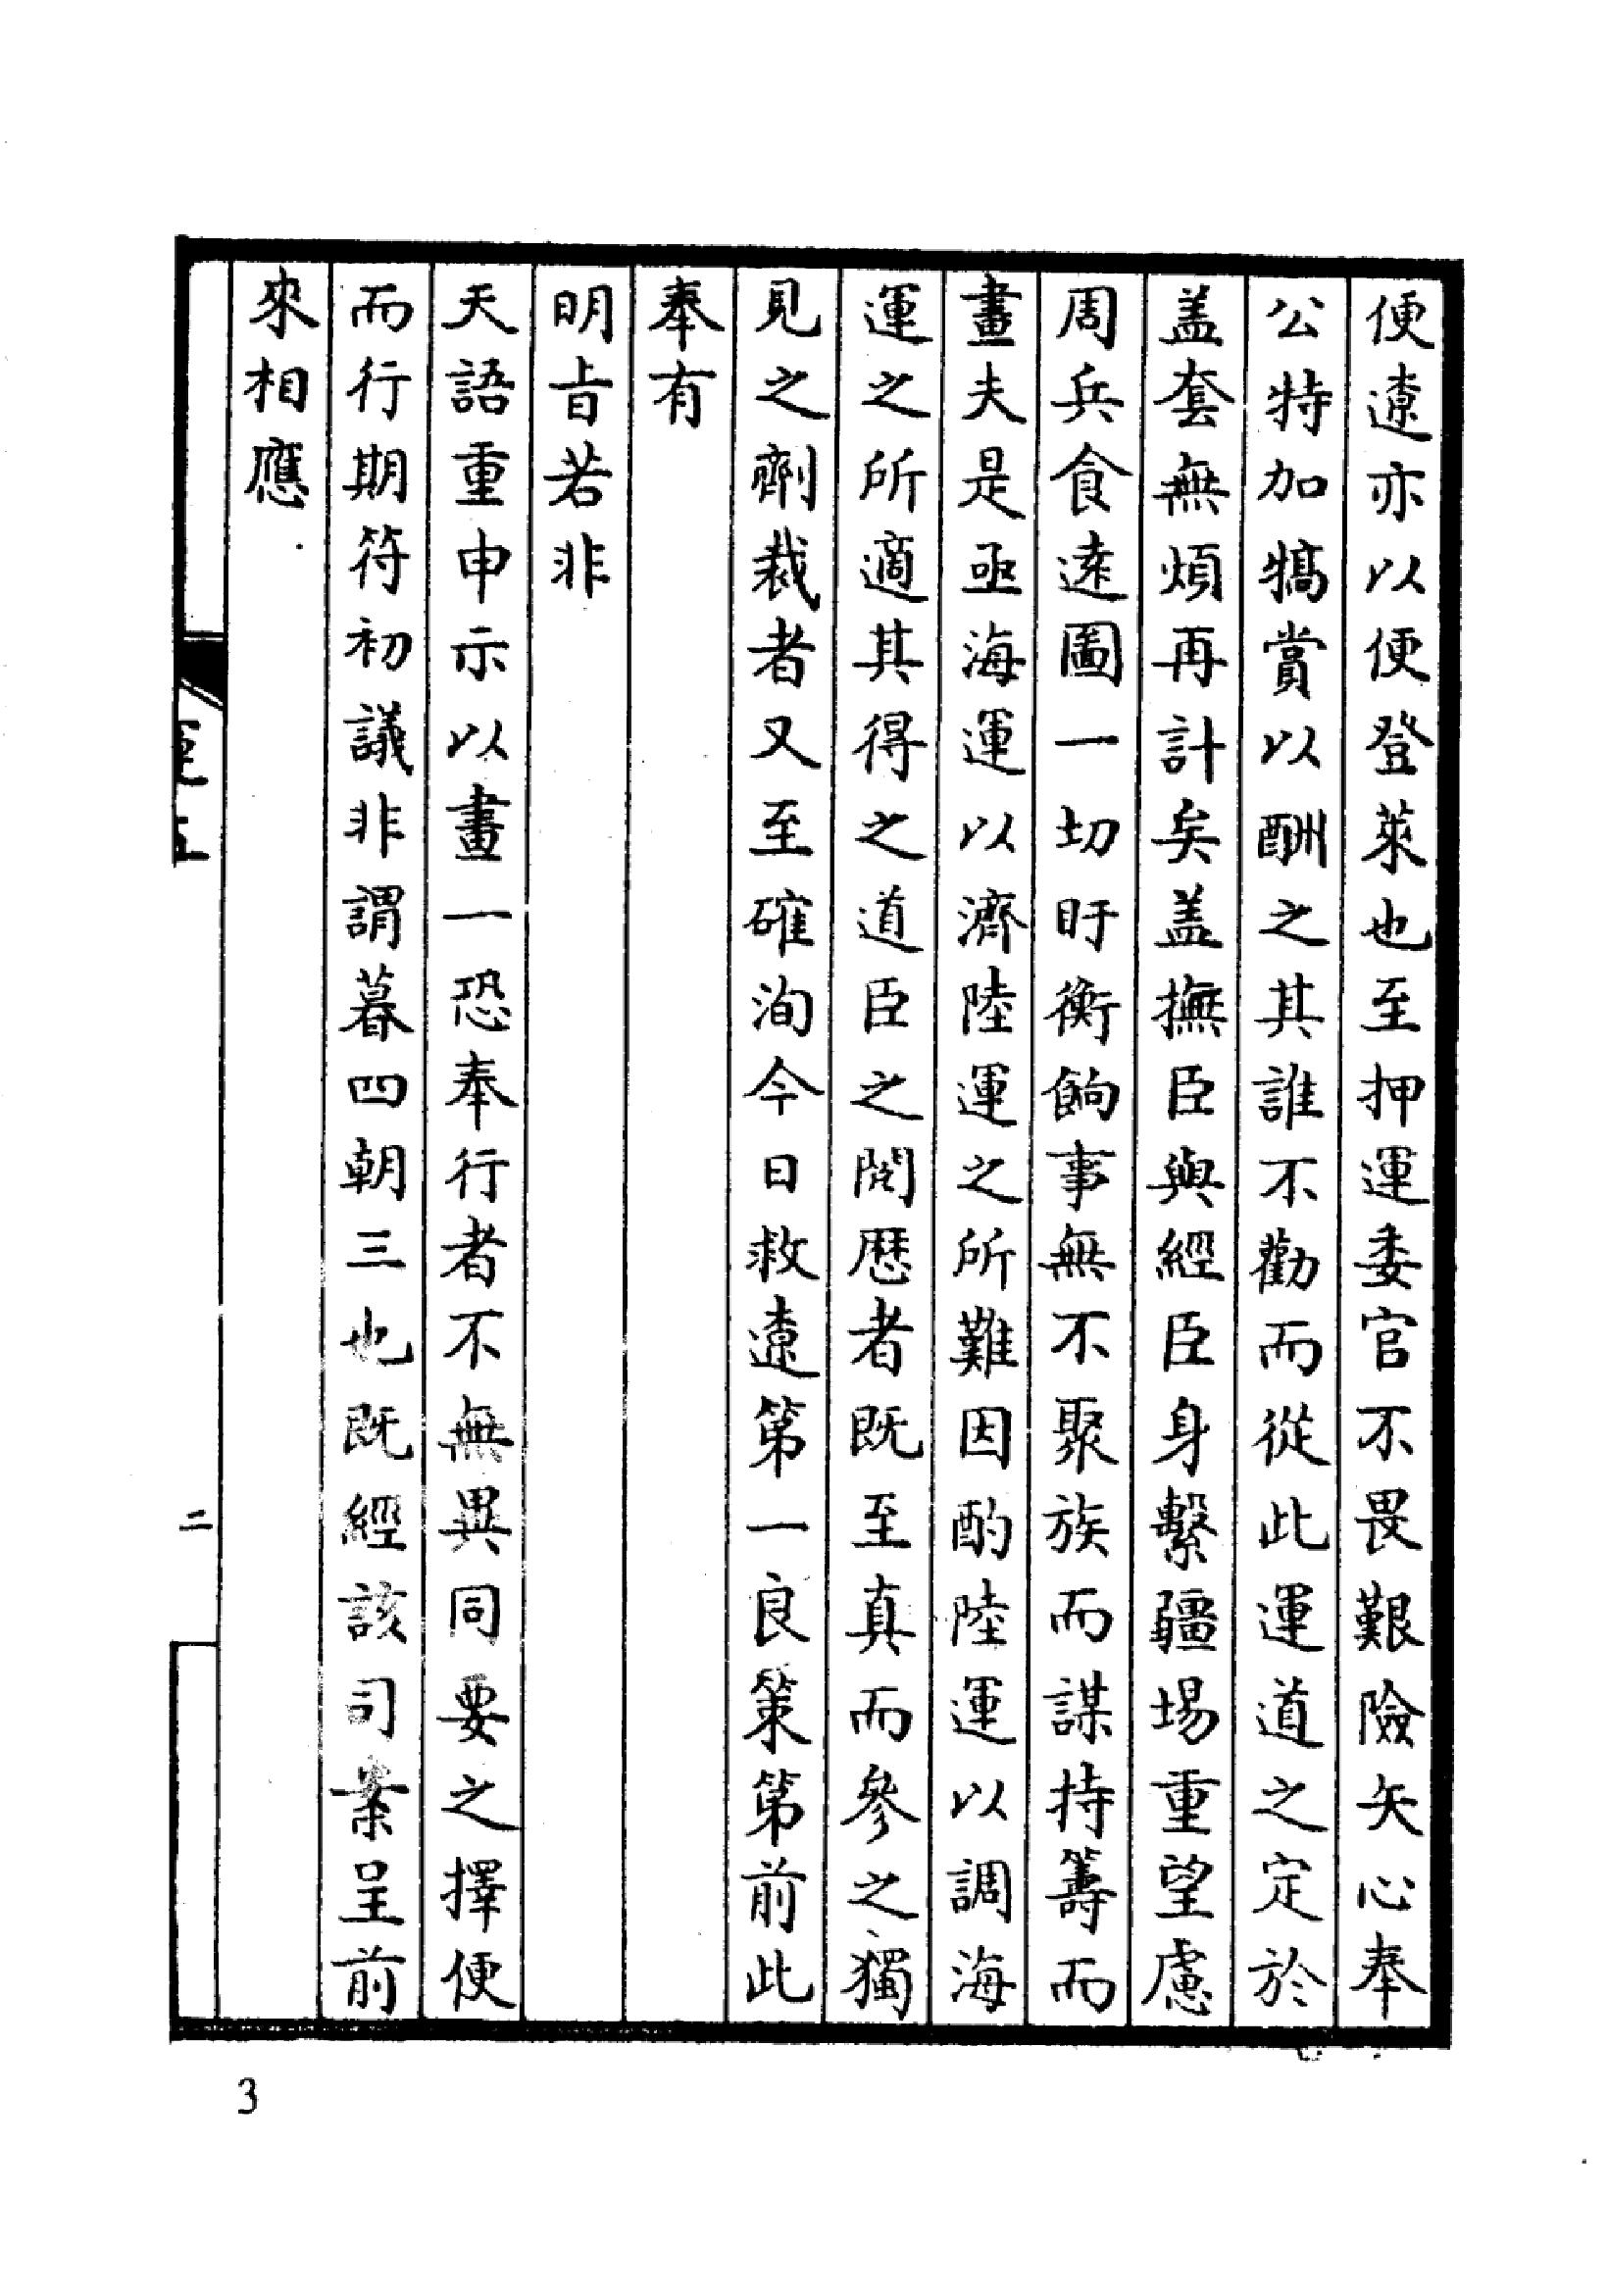 便遼亦以便登萊也至押運委官不畏艱險矢心奉
公特加犒賞以酬之其誰不勸而從此運道之定於
盖套無煩再計矣盖撫臣與經臣身繫疆埸重望慮
周兵食遠圖一切盱衡餉事無不聚族而謀持籌而
畫夫是亟海運以濟陸運之所難因酌陸運以調海
運之所適其得之道臣之閱歷者既至真而參之獨
見之劑裁者又至確洵今日救遼第一良策第前此
奉有
明旨若非
天語重申示以畫一恐奉行者不無異同要之擇便
而行期符初議非謂暮四朝三也既經該司案呈前
來相應
二
3